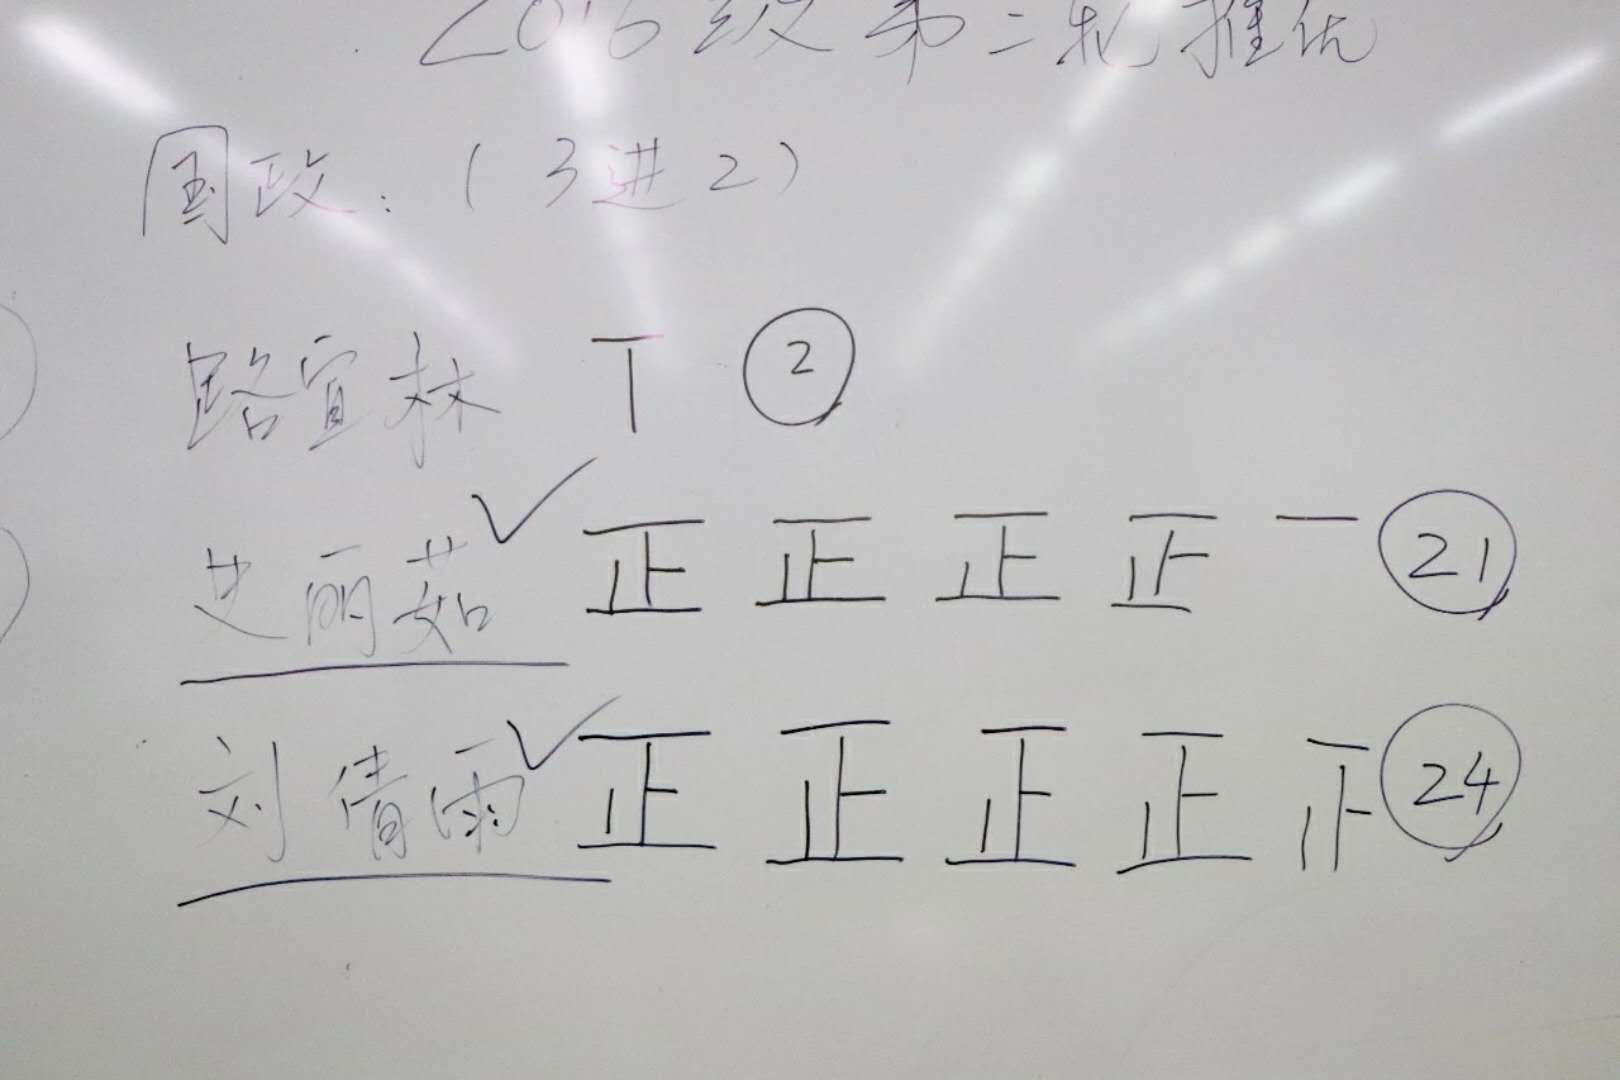 2016级第二轮推优
国政:(3进2)
路宜林 丅 ②
艾丽茹 ✓ 正 正 正 正 一 21
刘倩雨 ✓ 正 正 正 正 24